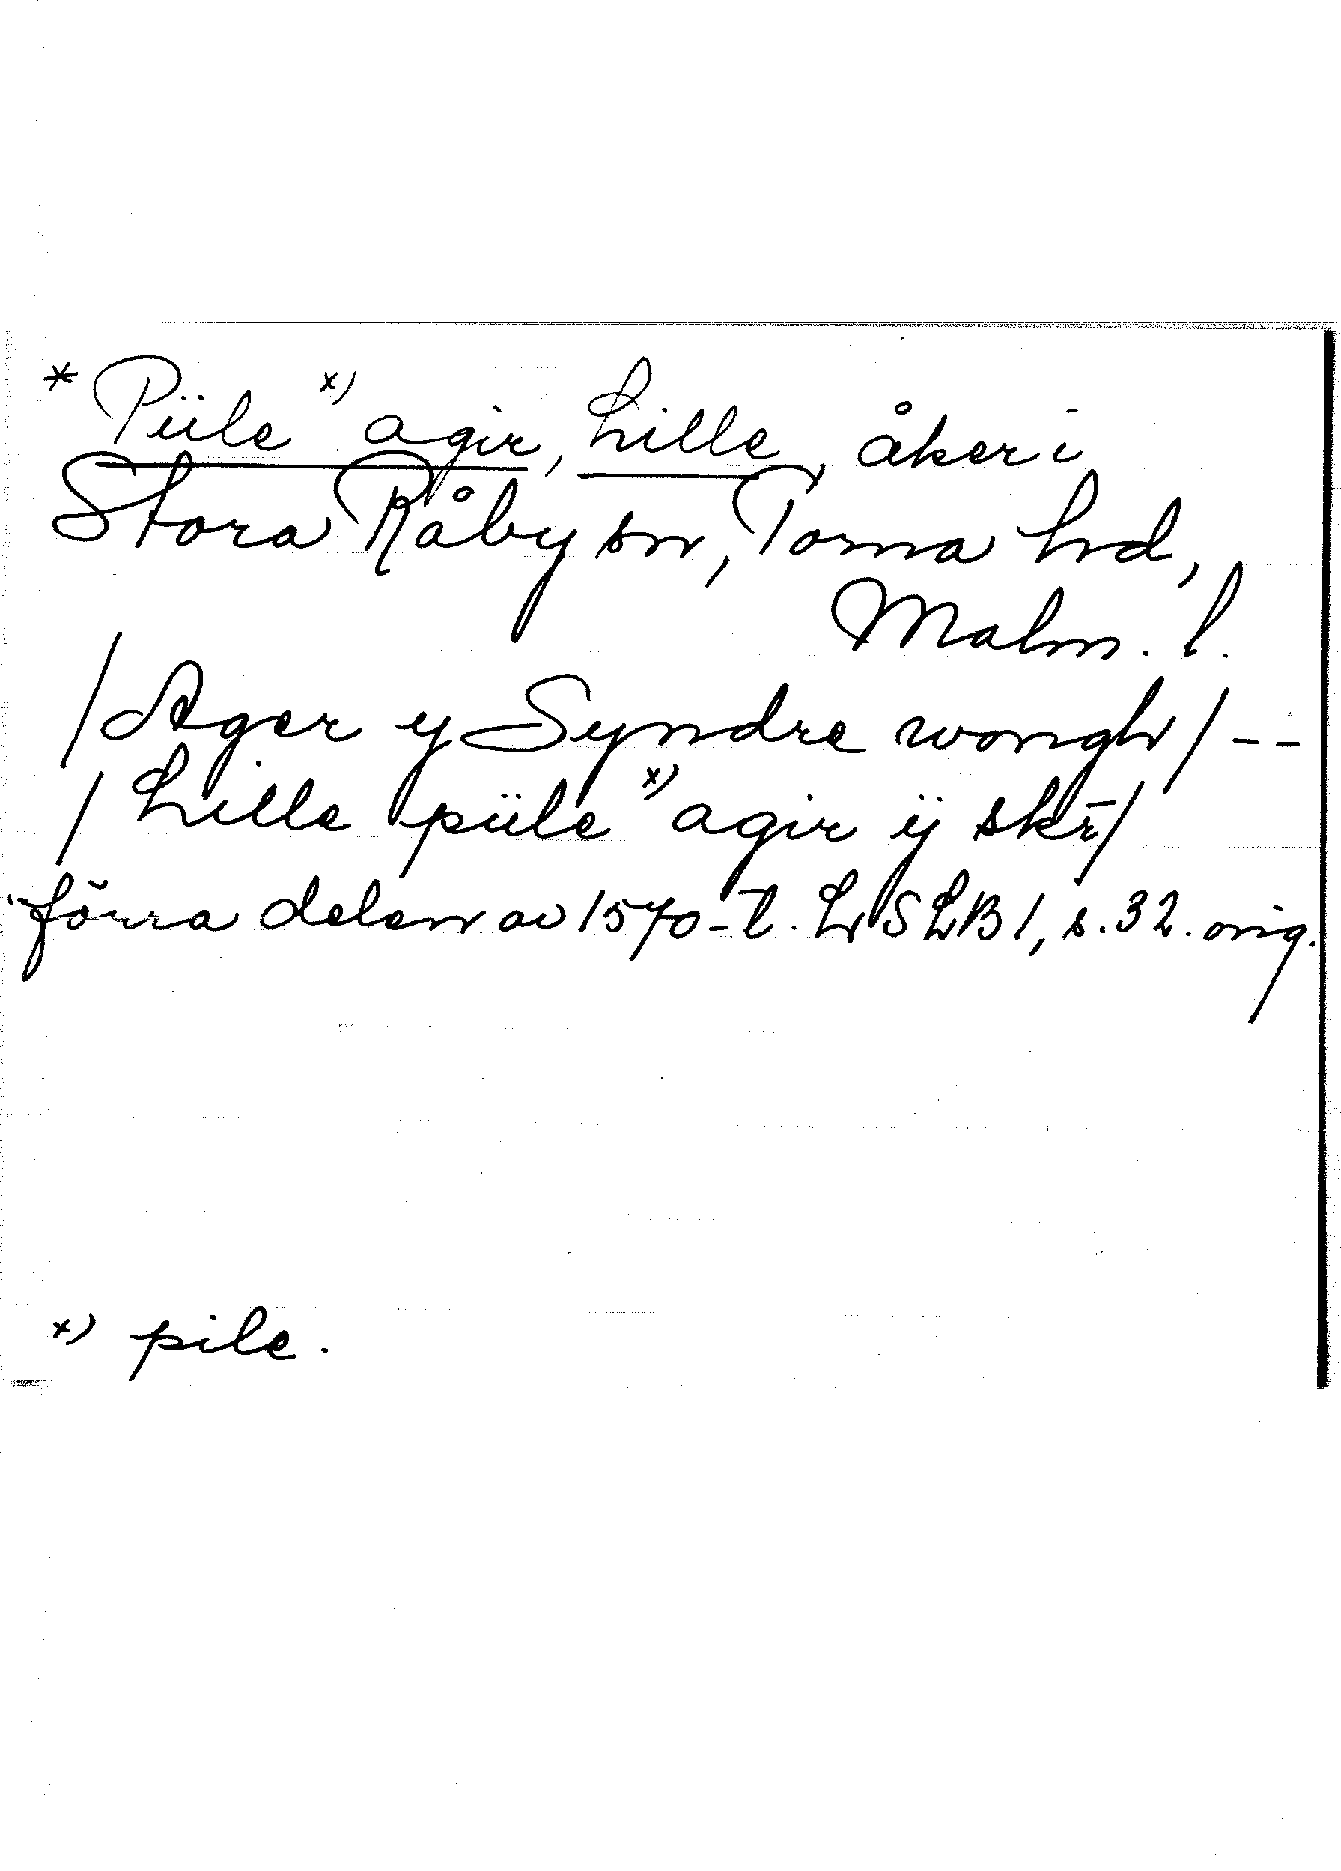 * Piile x) agir, Lille, åker i
Stora Råby sn, Torna hd,
Malm. l.
/Ager y Syndre wongh/ --
/Lille piile x) agir ij skr̄/
förra delen av 1570-t. LLSLB 1, s. 32. orig.
x) pile.